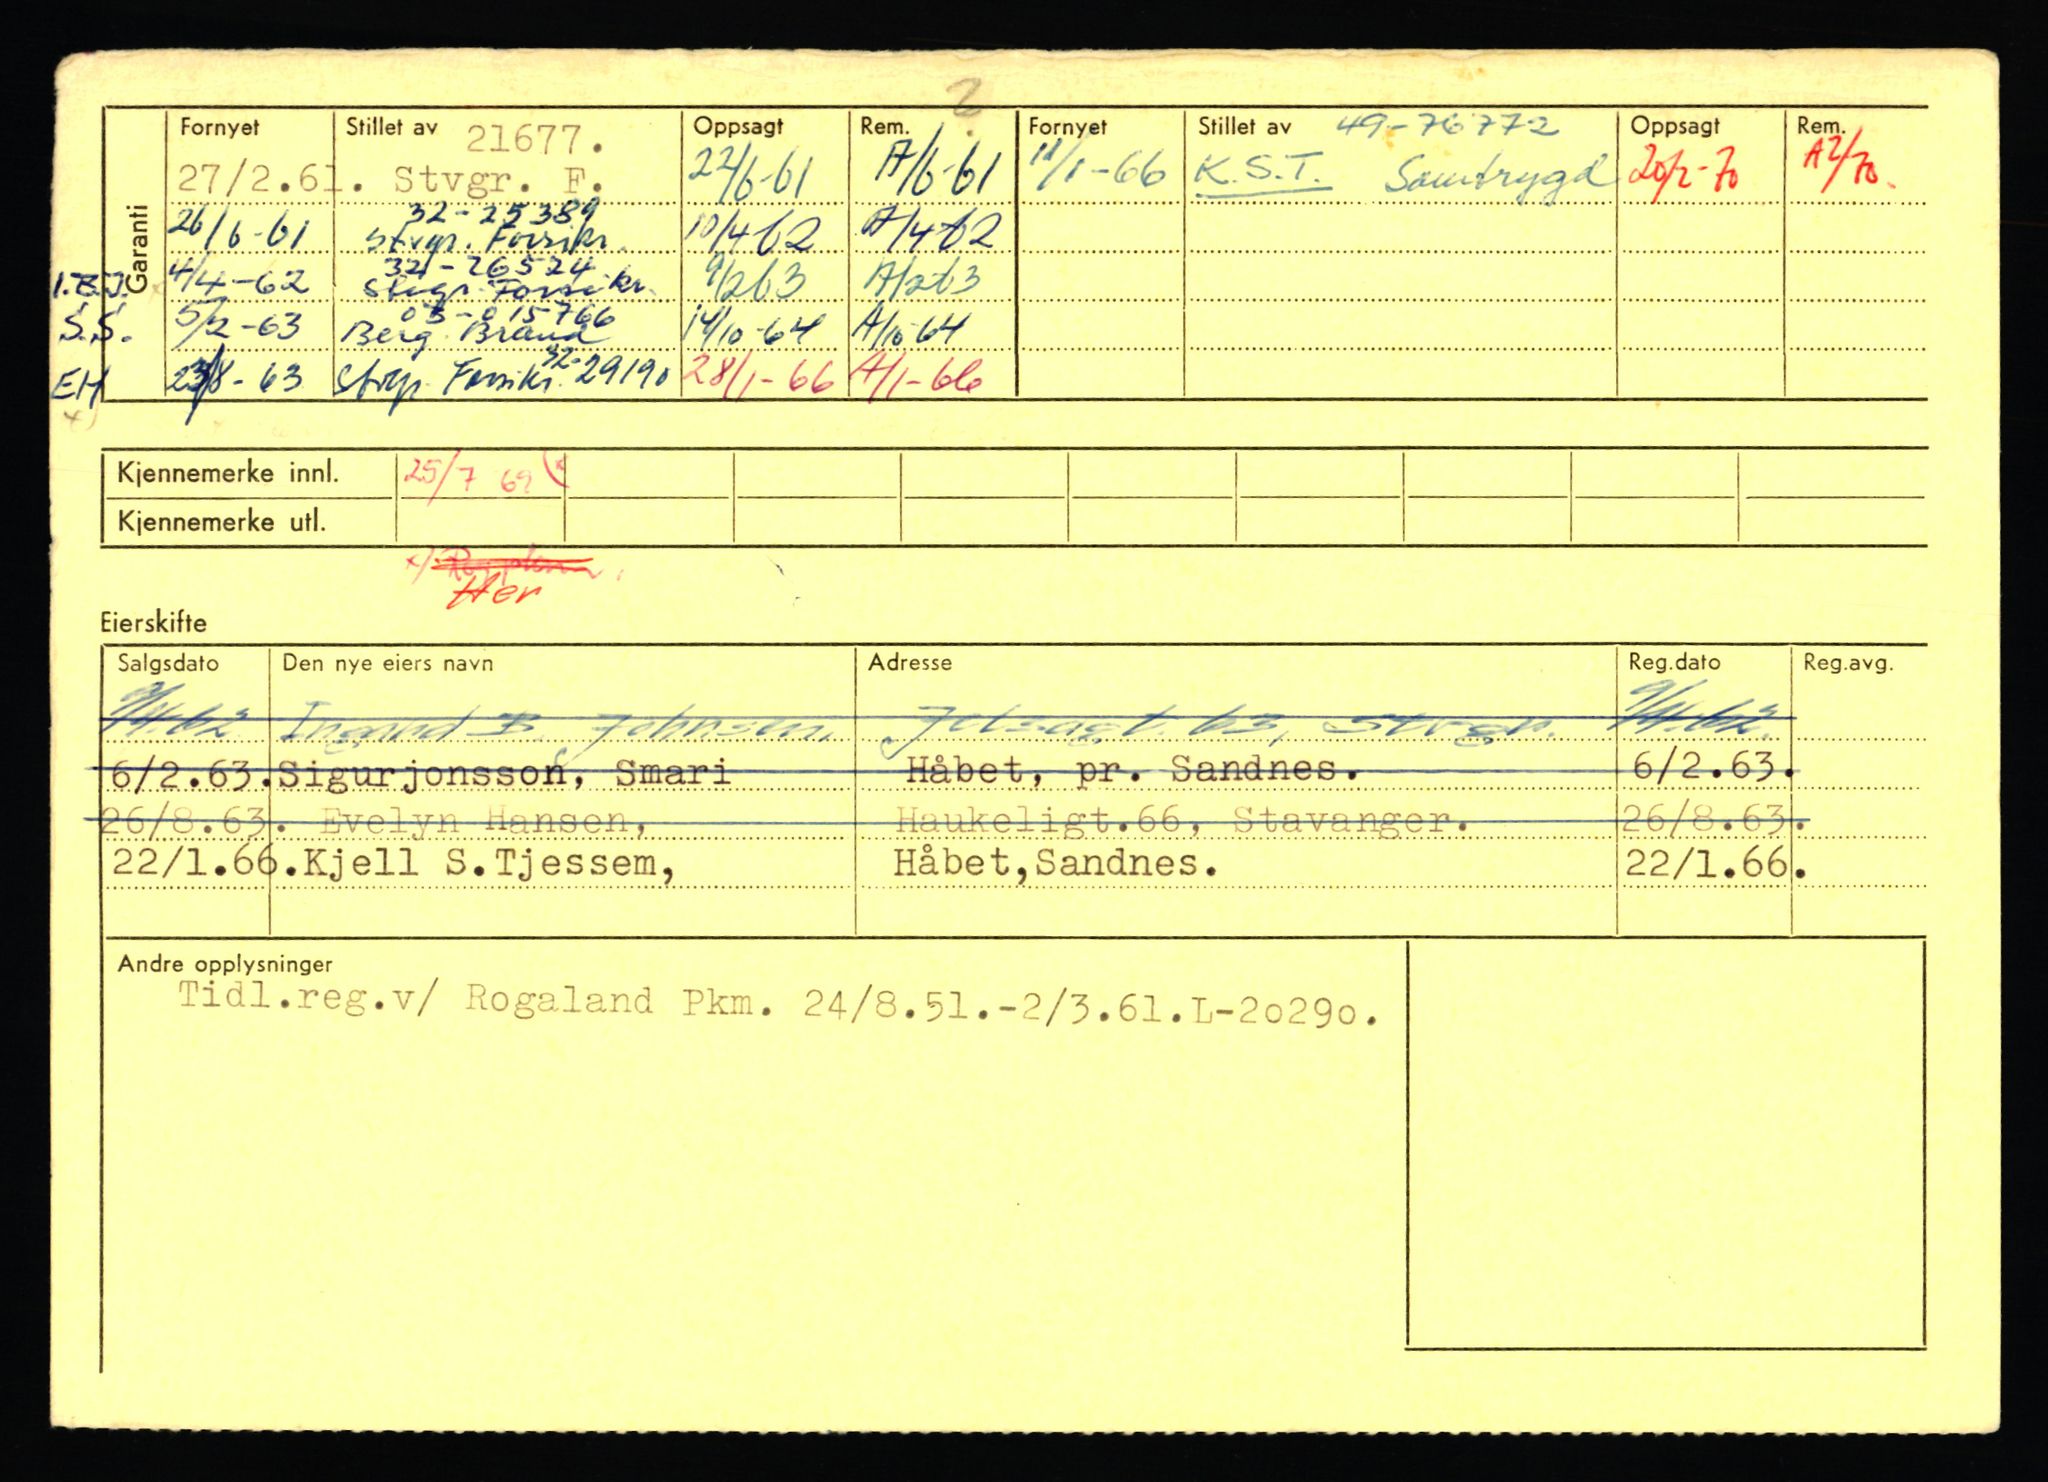 2
Garanti
Fornyet Stillet av 21677. Oppsagt Rem. Fornyet Stillet av 49-76772 Oppsagt Rem.
27/2.61. Stvgr. F. 22/6-61 A/6-61 11/1-66 K.S.T. Samtrygd 20/2-70 A2/70.
32-25389
26/6-61 Stvgr. Forsikr. 10/4-62 A/4-62
32-26524
I.B.J. 4/4-62 Stvgr. Forsikr. 9/2 63 A/2 63
03-015766
S.S. 5/2-63 Berg. Brand 14/10-64 A/10-64
EH 23/8-63 Stvgr. Forsikr. 32-29190 28/1-66 A/1-66
x)
Kjennemerke innl. 25/7 69 (x
Kjennemerke utl.
x)
Her
Eierskifte
Salgsdato Den nye eiers navn Adresse Reg.dato Reg.avg.
9/4.62 Ingund B. Johnsen, Jelsagt. 63, Stvgr. 9/4.62.
6/2.63. Sigurjonsson, Smari Håbet, pr. Sandnes. 6/2.63.
26/8.63. Evelyn Hansen, Haukeligt.66, Stavanger. 26/8.63.
22/1.66. Kjell S.Tjessem, Håbet,Sandnes. 22/1.66.
Andre opplysninger
Tidl.reg.v/ Rogaland Pkm. 24/8.51.-2/3.61.L-20290.